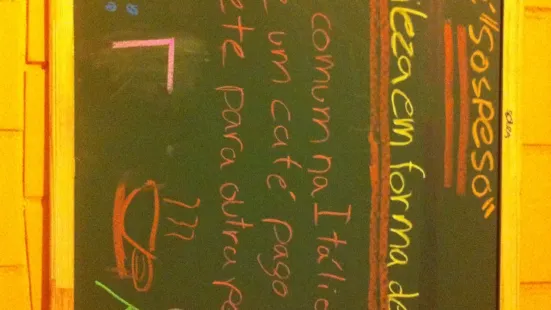 : "Sospeso"
ileza em forma de
comum na Itália
um café pago
ete para outra